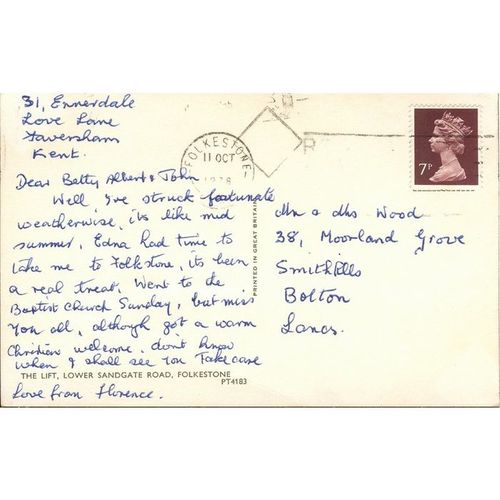 31, Ennerdale
Love Lane
Faversham
Kent.
Dear Betty Albert & John
Well, I've struck fortunate
weatherwise, it's like mid
summer, Edna had time to
take me to Folkstone, its been
a real treat. Went to the
Baptist Church Sunday, but miss
you all, although got a warm
Christian welcome, don't know
when I shall see you Take care
THE LIFT, LOWER SANDGATE ROAD, FOLKESTONE
PT4183
Love from Florence.
PRINTED IN GREAT BRITAIN
FOLKESTONE
11 OCT
R
7P
Mr & Mrs Wood
38, Moorland Grove
Smithills
Bolton
Lancs.